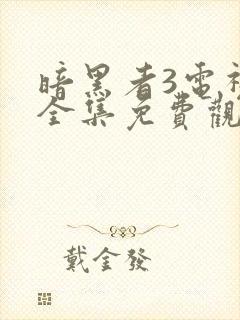 暗黑者3電視
全集免費觀
戴金發